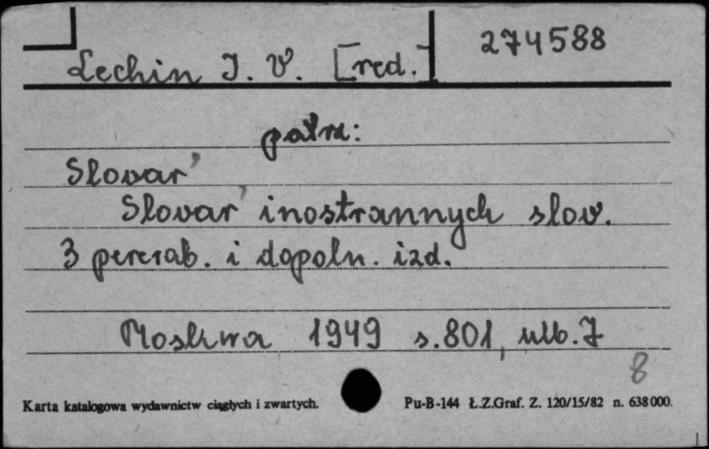 Lechin J. V. [red.] 274588
patrz:
Slovar'
Slovar' inostrannych slov.
3 pererab. i dopoln. izd.
Moskwa 1949 s. 801, nlb. 7
8
Karta katalogowa wydawnictw ciągłych i zwartych. Pu-B-144 Ł.Z.Graf. Z. 120/15/82 n. 638000.